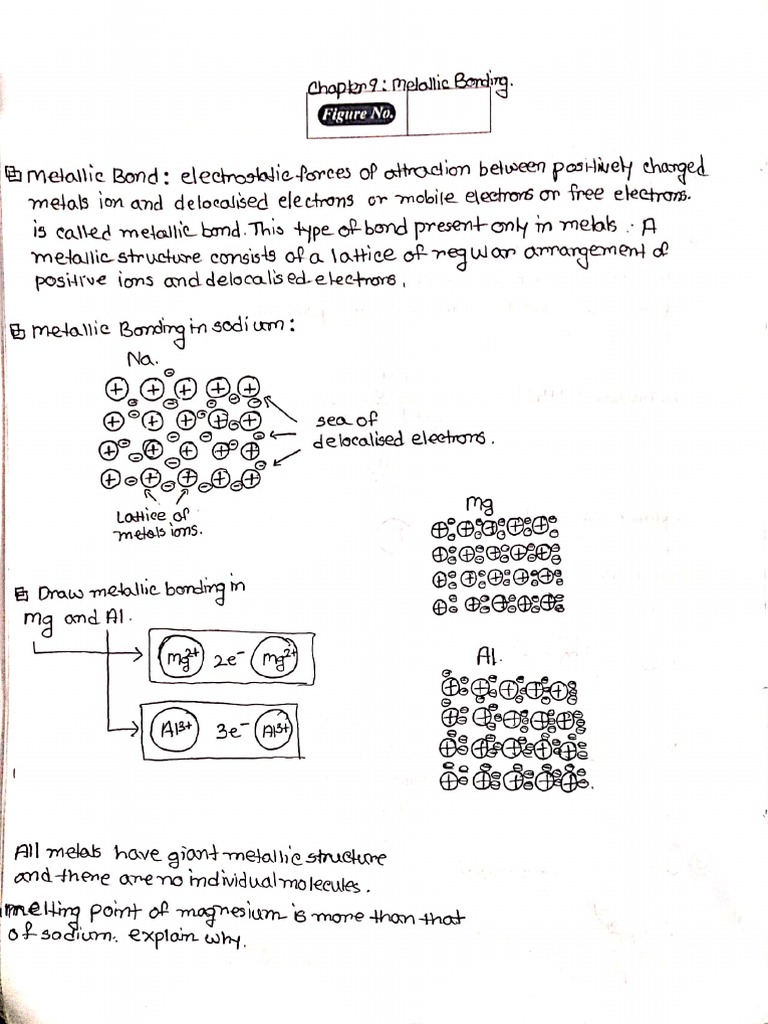 Chapter 9: Metallic Bonding.
Figure No.
Metallic Bond: electrostatic forces of attraction between positively charged
metals ion and delocalised electrons or mobile electrons or free electrons.
is called metallic bond. This type of bond present only in metals. A
metallic structure consists of a lattice of regular arrangement of
positive ions and delocalised electrons.
Metallic Bonding in sodium:
Na.
sea of
delocalised electrons.
Lattice of
metals ions.
Mg
Draw metallic bonding in
Mg and Al.
Mg2+ 2e- Mg2+
Al.
Al3+ 3e- Al3+
All metals have giant metallic structure
and there are no individual molecules.
melting point of magnesium is more than that
of sodium. explain why.